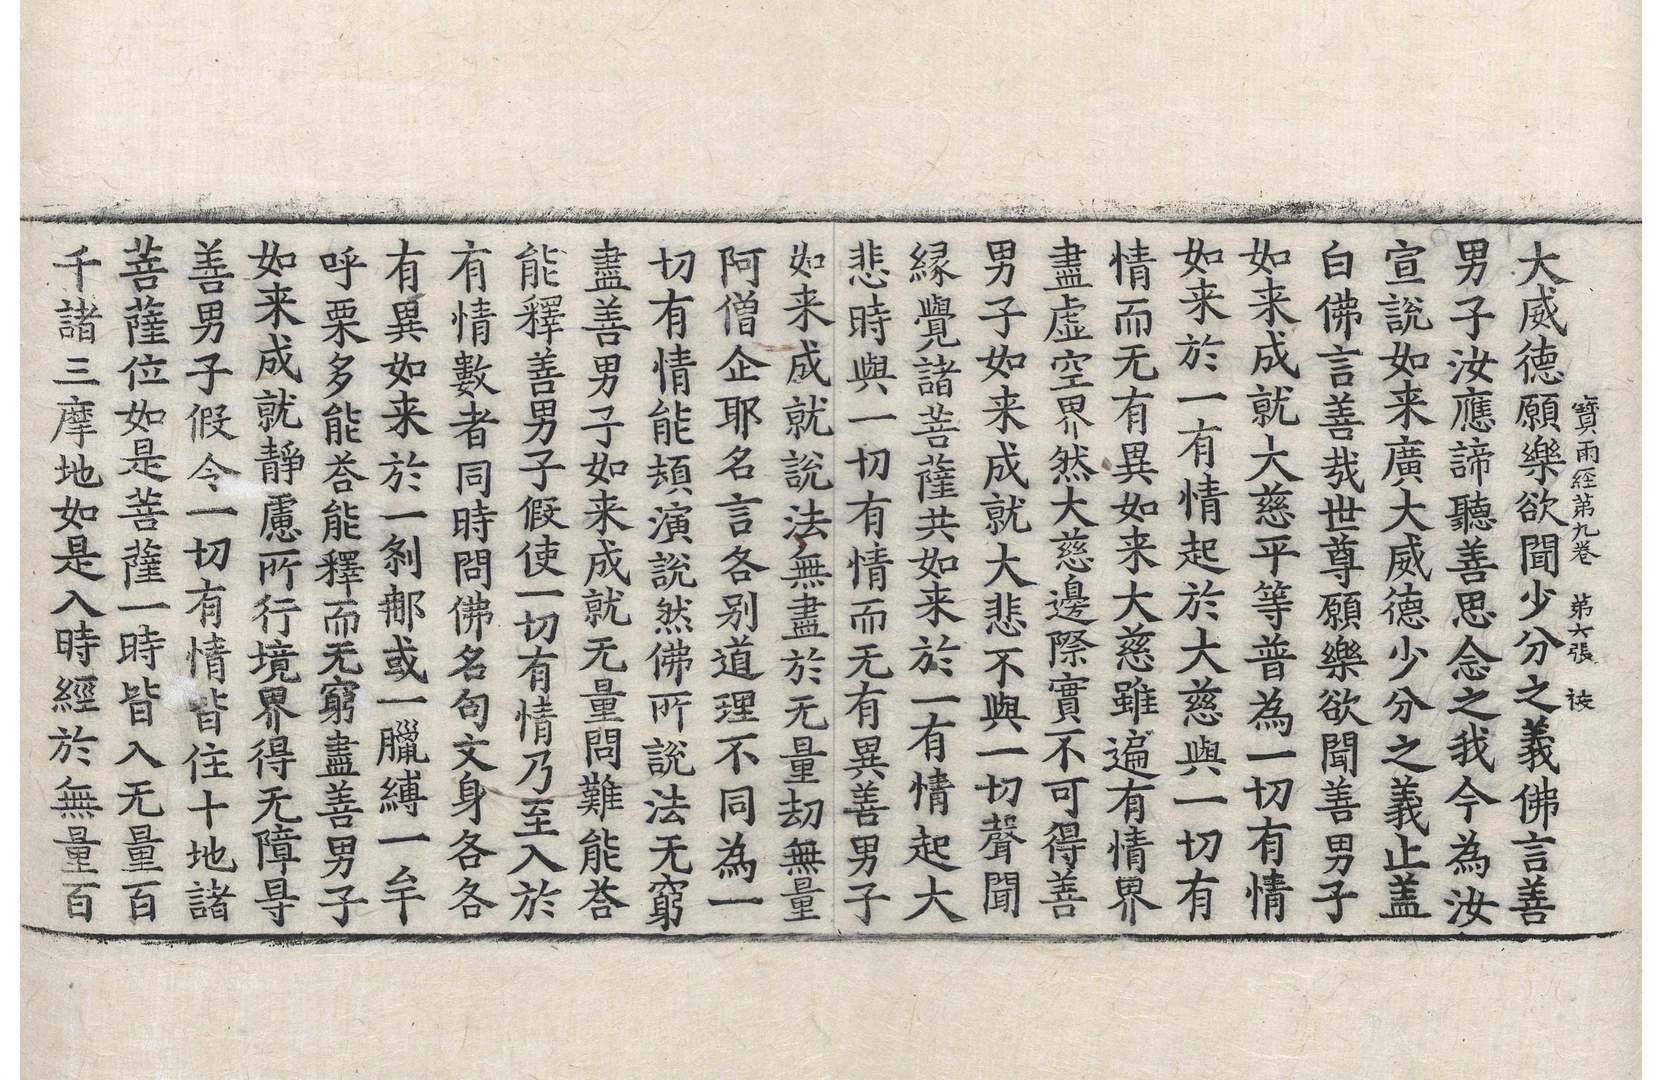 寶雨經第九卷　第六張　彼
大威德願樂欲聞少分之義佛言善
男子汝應諦聽善思念之我今為汝
宣說如来廣大威德少分之義止盖
白佛言善哉世尊願樂欲聞善男子
如来成就大慈平等普為一切有情
如来於一有情起於大慈與一切有
情而无有異如来大慈雖遍有情界
盡虛空界然大慈邊際實不可得善
男子如来成就大悲不與一切聲聞
緣覺諸菩薩共如来於一有情起大
悲時與一切有情而无有異善男子
如来成就說法無盡於无量劫無量
阿僧企耶名言各別道理不同為一
切有情能頻演說然佛所說法无窮
盡善男子如来成就无量問難能荅
能釋善男子假使一切有情乃至入於
有情數者同時問佛名句文身各各
有異如来於一剎那或一臘縛一牟
呼栗多能荅能釋而无窮盡善男子
如来成就靜慮所行境界得无障㝵
善男子假令一切有情皆住十地諸
菩薩位如是菩薩一時皆入无量百
千諸三摩地如是入時經於無量百